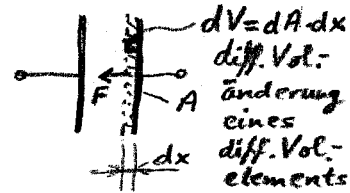 dV=dA·dx
diff. Vol.-
änderung
eines
diff. Vol.-
elements
F
A
dx